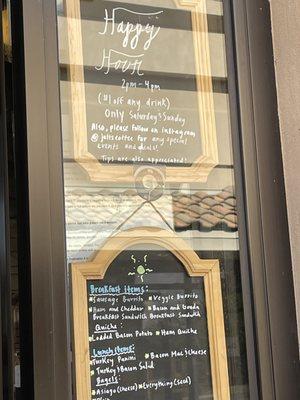 Happy
Hour
2pm - 4pm
($1 off any drink)
Only Saturday & Sunday
Also, please follow on instagram
@ jolts coffee for any special
events and deals!
Tips are also appreciated!
Breakfast Items:
Sausage Burrito Veggie Burrito
Ham and Cheddar Bacon and Gouda
Breakfast Sandwich Breakfast Sandwich
Quiche:
Loaded Bacon Potato Ham Quiche
Lunch Items:
Turkey Panini Bacon Mac & Cheese
Turkey & Bacon Salad
Bagels:
Asiago (cheese) Everything (seed)
Plain